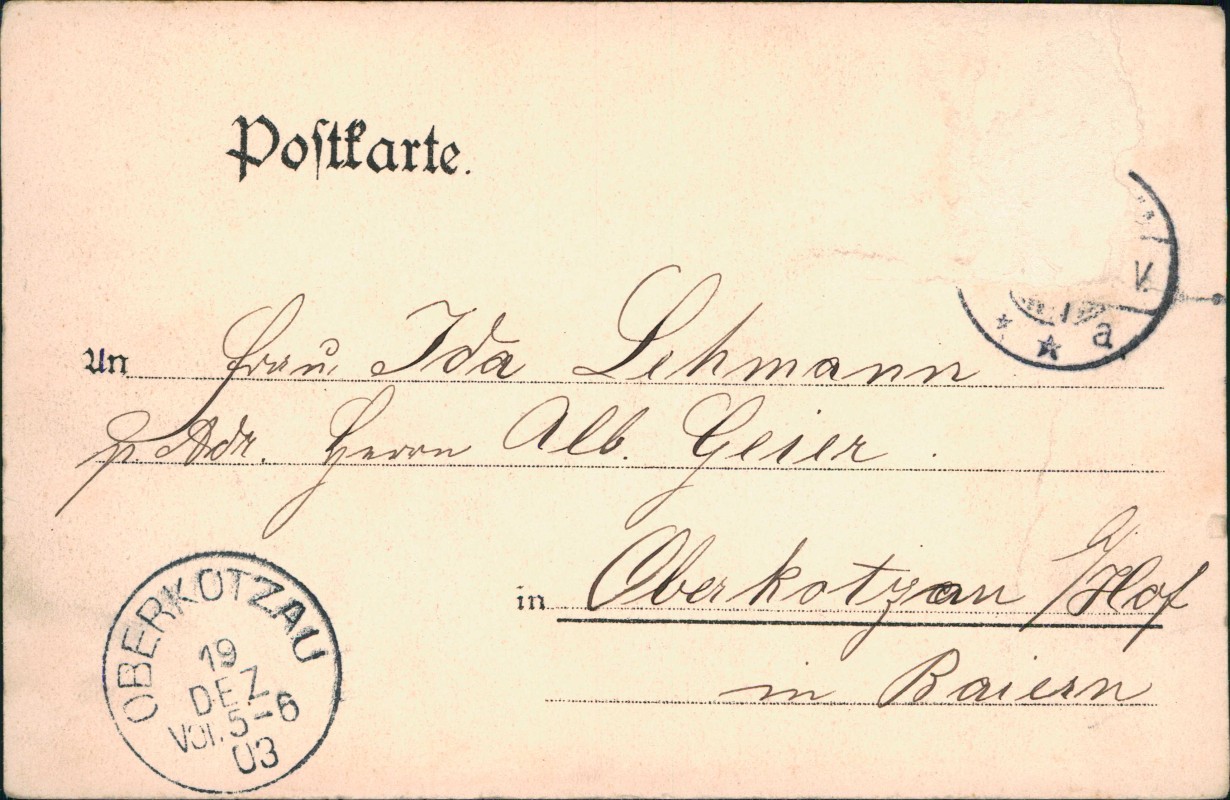 Postkarte.
V
a
An Frau Ida Lehmann
p. Adr. Herrn Alb. Geier.
in Oberkotzau /Hof
in Baiern
OBERKOTZAU
19
DEZ
Vor. 5-6
03